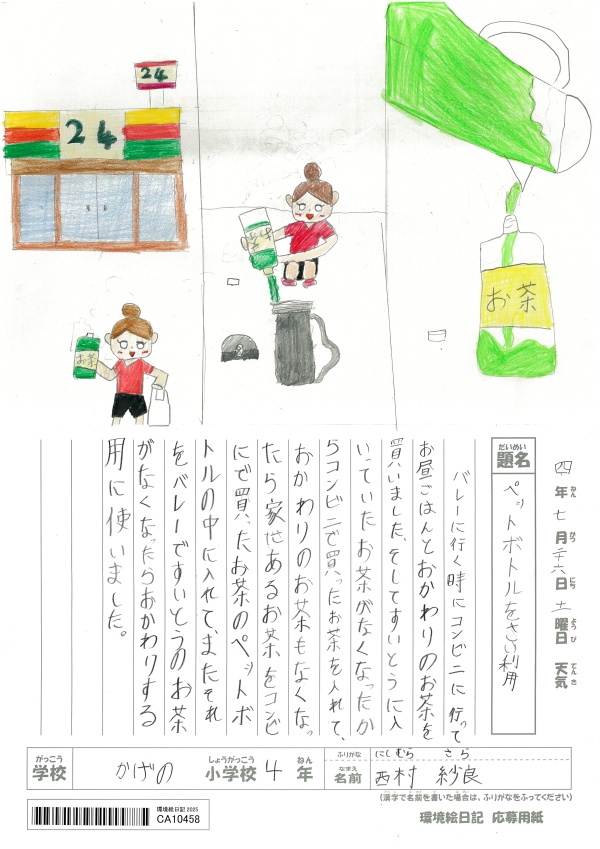 24
24
お茶
お茶
お茶
四年七月二十六日土曜日 天気
だいめい
題名
ペットボトルをさい利用
バレーに行く時にコンビニに行って
お昼ごはんとおかわりのお茶を
買いました。そしてすいとうに入
いていたお茶がなくなったか
らコンビニで買ったお茶を入れて、
おかわりのお茶もなくなっ
たら家にあるお茶をコンビ
ニで買ったお茶のペットボ
トルの中に入れて、またそれ
をバレーですいとうのお茶
がなくなったらおかわりする
用に使いました。
がっこう
学校
かげの
しょうがっこう
小学校
4
ねん
年
ふりがな
なまえ
名前
にしむら さら
西村 紗良
(漢字で名前を書いた場合は、ふりがなをふってください)
環境絵日記 2025
CA10458
環境絵日記 応募用紙